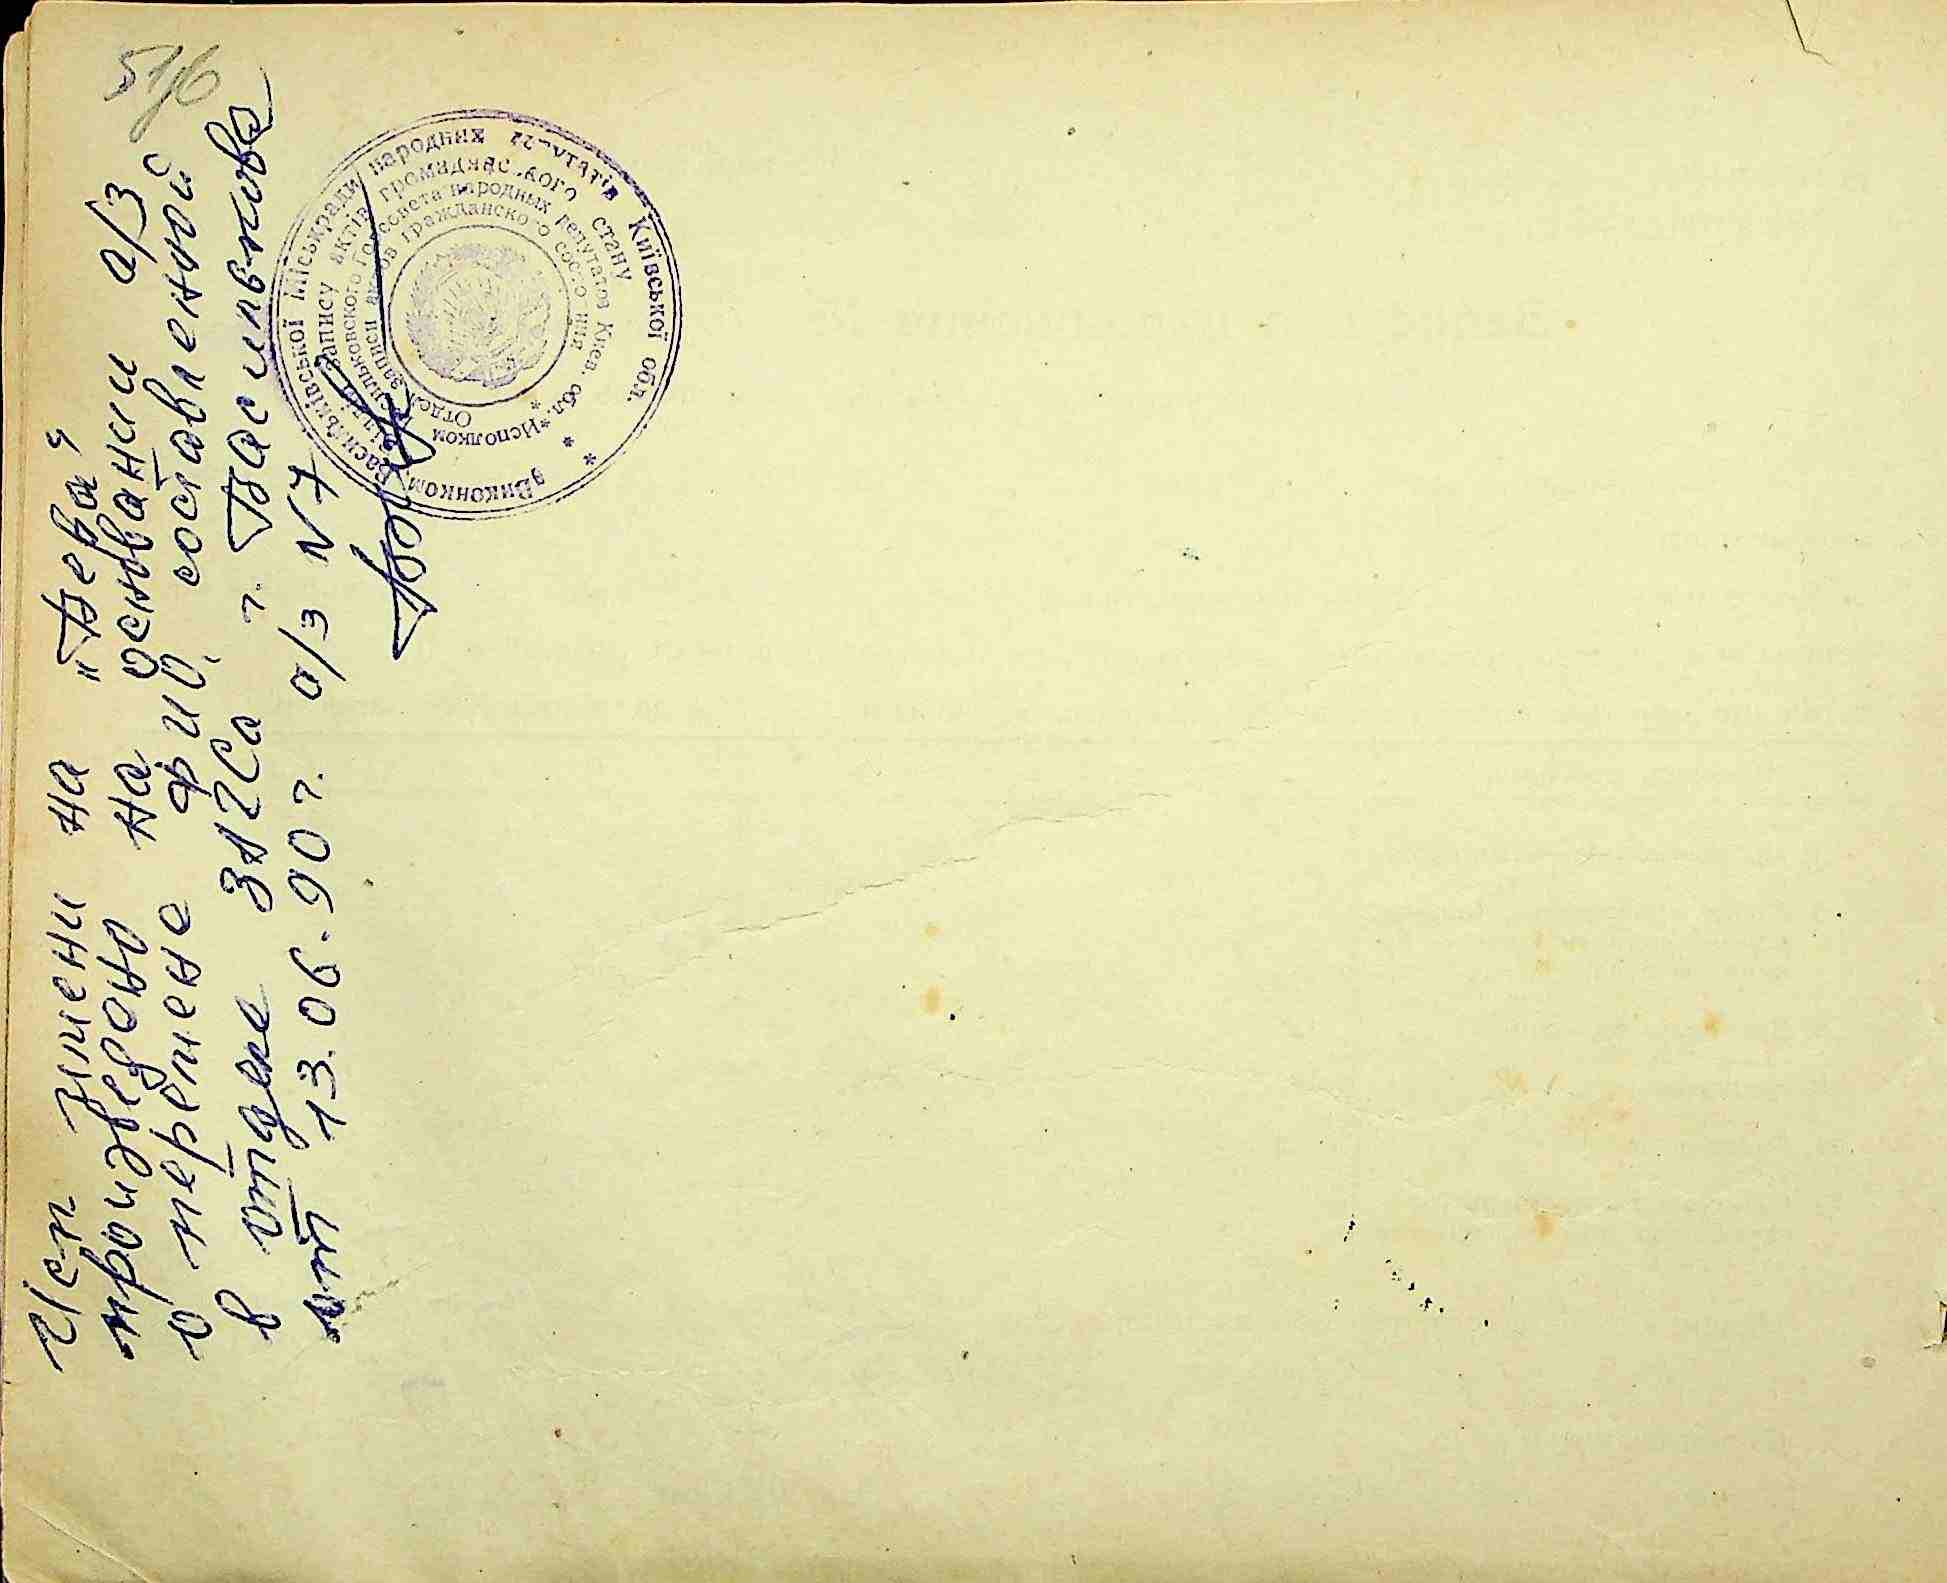 51/6
Исп имени на „Вева"
произведено на основании а/з
о перемене ФИО, составленной
в отделе ЗАГСа г. Василькова
от 13.06.90 г. а/з N 7
Виконком Васильківської Міськради народних депутатів Київської обл.
Відділ запису актів громадянського стану
Исполком Васильковского Горсовета народных депутатов Киев. обл.
Отдел записи актов гражданского состояния